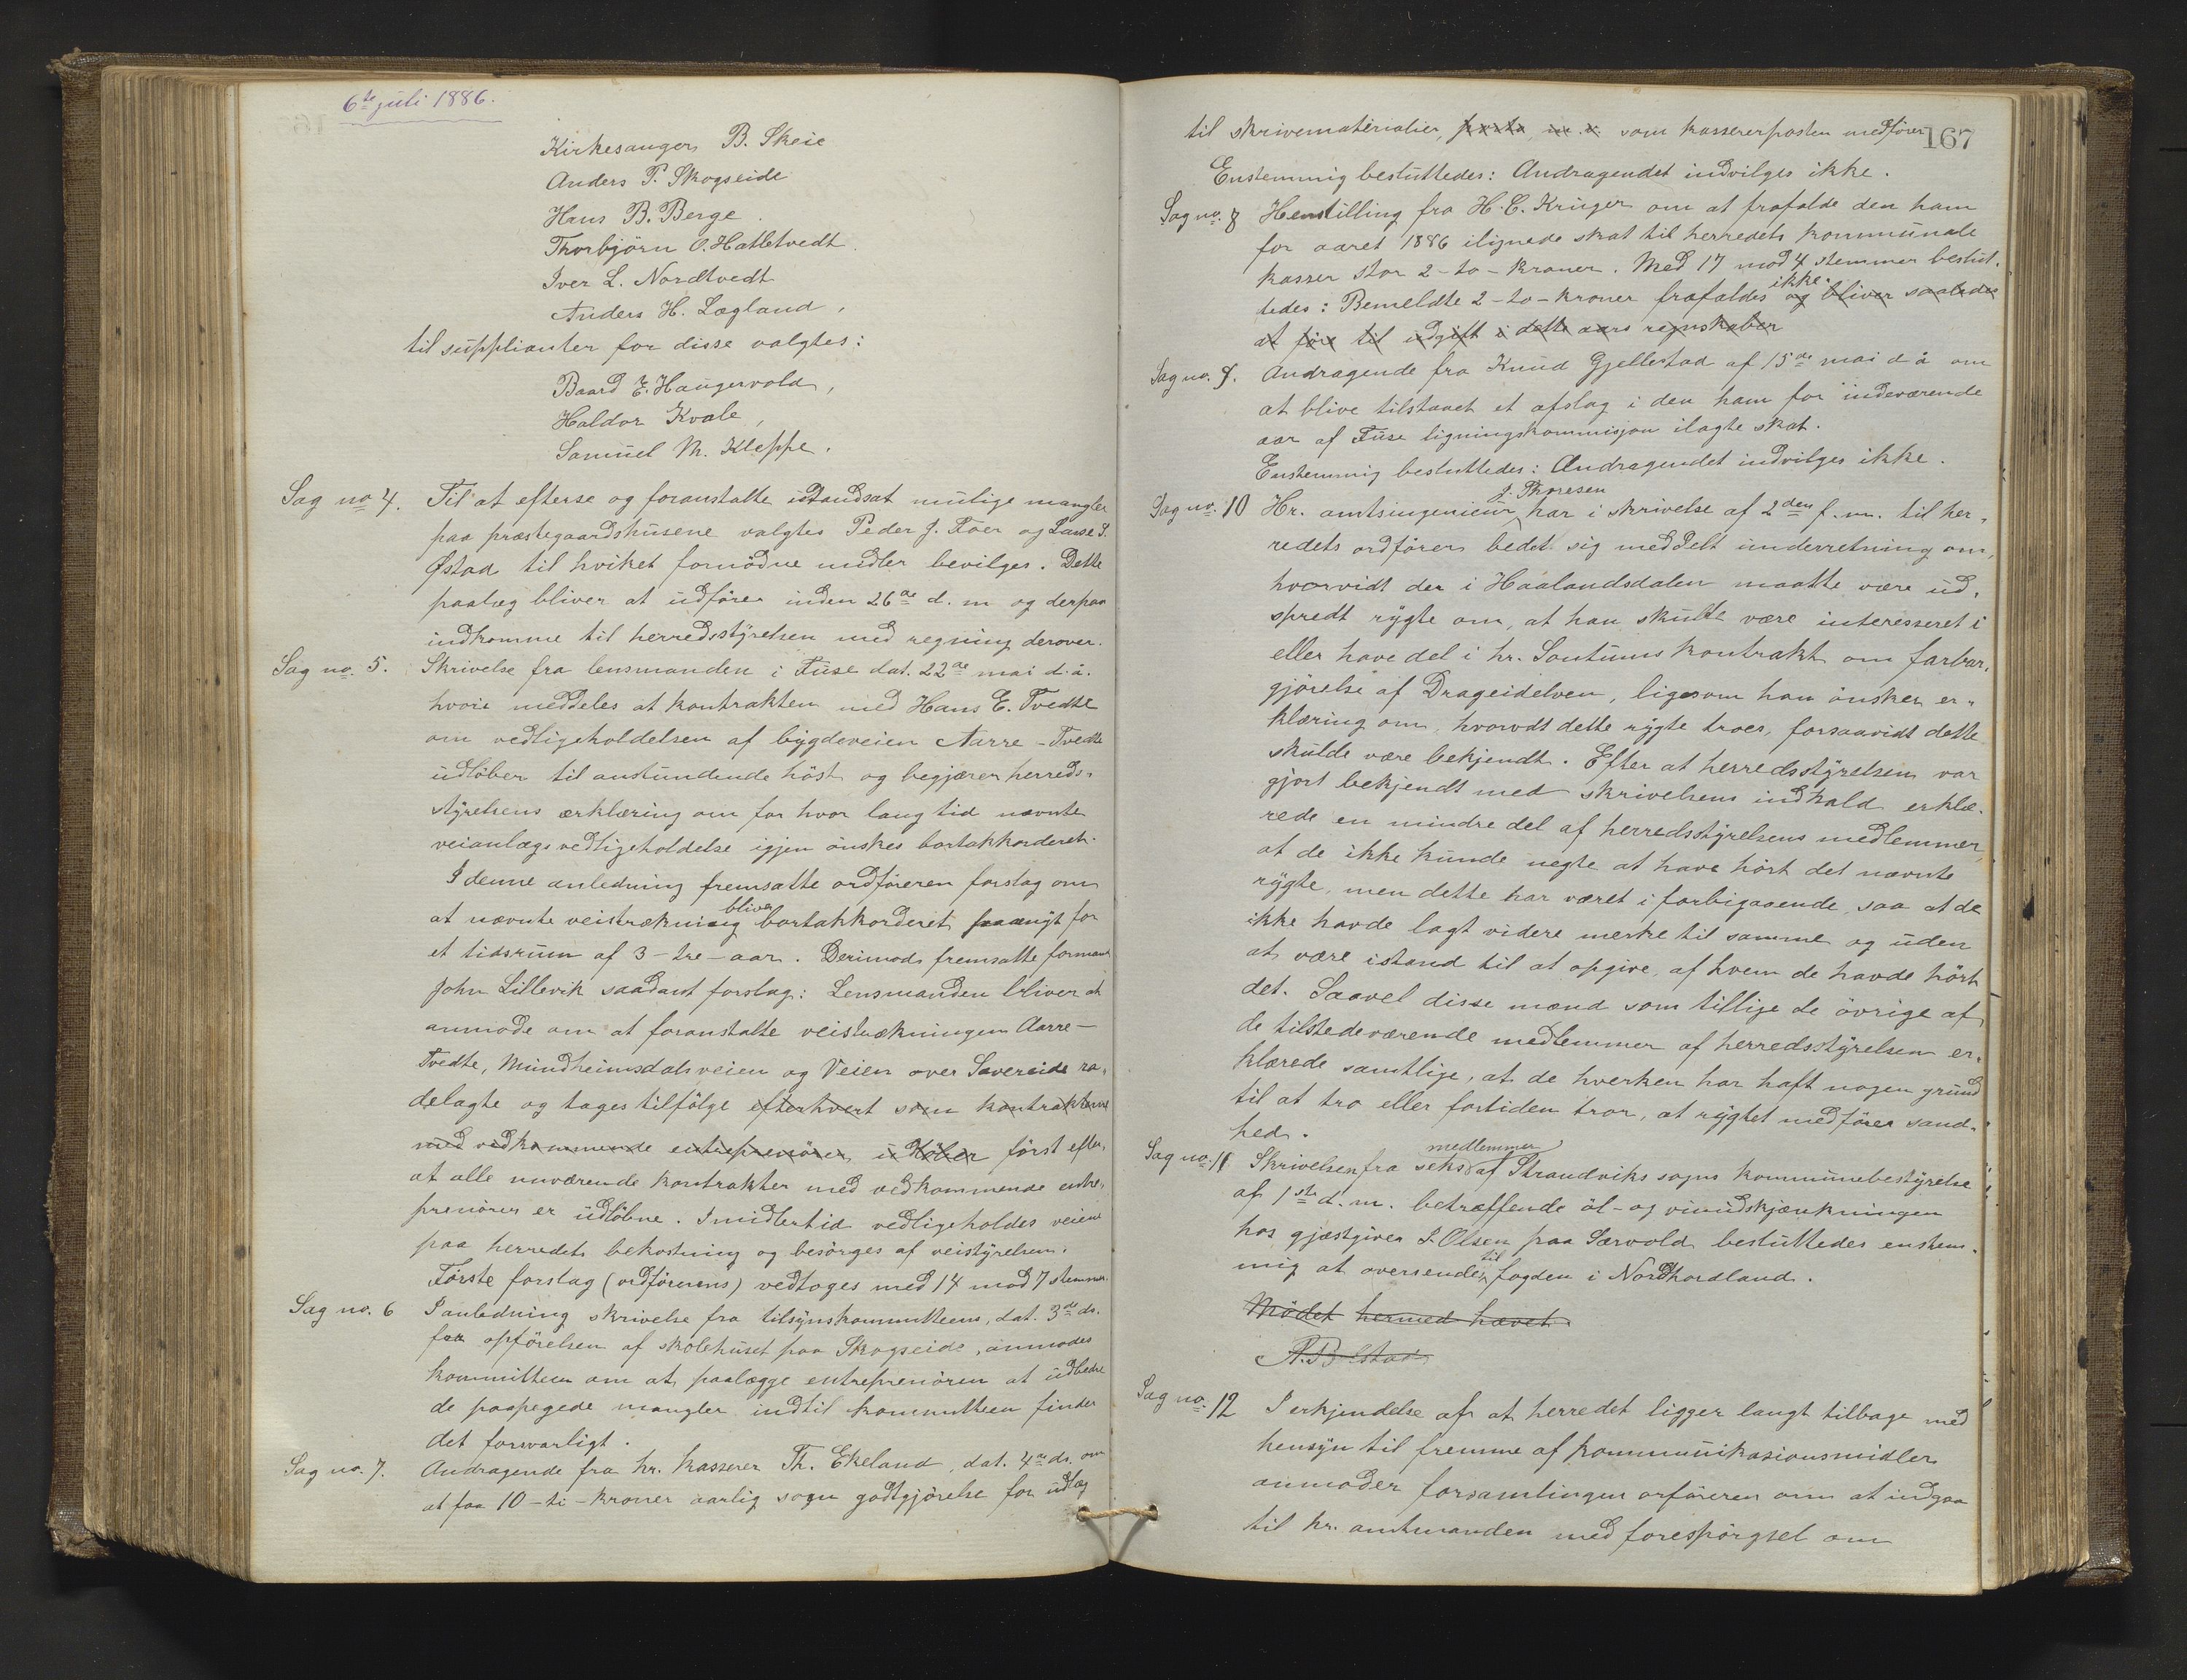 6te juli 1886.
Kirkesanger B. Skeie
Anders P. Skogseide
Hans B. Berge
Thorbjörn O. Hatletvedt
Iver L. Nordtvedt
Anders H. Lægland,
til supplianter for disse valgtes:
Baard E. Haugervold,
Haldor Kvale,
Samuel M. Kleppe.
Sag no 4. Til at efterse og foranstalte istandsat mulige mangler
paa præstegaardshusene valgtes Peder J. Koer og Lasse S.
Østad til hviket fornödne midler bevilges. Dette
paalæg bliver at udföres inden 26de d. m og derpaa
indkomme til herredsstyrelsen med regning derover.
Sag no. 5. Skrivelse fra lensmanden i Fuse dat. 22de mai d. å.
hvori meddeles at kontrakten med Hans E. Tvedte
om vedligeholdelsen af bygdeveien Aarre-Tvedte
udlöber til anstundende höst og begjærer herreds-
styrelsens erklæring om for hvor lang tid nævnte
veianlægs vedligeholdelse igjen önskes bortakkorderet.
I denne anledning fremsatte ordföreren forslag om
at nævnte veistrækning bliver bortakkorderet paanyt for
et tidsrum af 3-tre-aar. Derimod fremsatte formand
John Lillevik saadant forslag: Lensmanden bliver at
anmode om at foranstalte veistrækningen Aarre-
Tvedte, Mundheimsdalsveien og Veien over Savereide ro-
delagte og tages tilfölge efterhvert som kontrakterne
med vedkommende entreprenörer udlöber först efter
at alle nuværende kontrakter med vedkommende entre-
prenörer er udlöbne. Imidlertid vedligeholdes veiene
paa herredets bekostning og besörges af veistyrelsen.
Förste forslag (ordförerens) vedtoges med 14 mod 7 stemmer.
Sag no. 6 I anledning skrivelse fra tilsynskommitteens, dat. 3de ds.
for opförelsen af skolehuset paa Skogseide, anmodes
kommitteen om at paalægge entreprenören at udbedre
de paapegede mangler indtil kommitteen finder
det forsvarligt.
Sag no. 7. Andragende fra hr. kasserer Th. Ekeland, dat. 4de ds. om
at faa 10-ti-kroner aarlig som godtgjörelse for udlæg
167
til skrivematerialier, porto m. v. som kassererposten medfører
Enstemmig besluttedes: Andragendet indvilges ikke.
Sag no. 8 Henstilling fra H. C. Krüger om at frafalde den ham
for aaret 1886 ilignede skat til herredets kommunale
kasser stor 2-to-kroner. Med 17 mod 4 stemmer beslut-
tedes: Bemeldte 2-to-kroner frafaldes ikke. og bliver saaledes
at före til udgift i dette aars regnskaber
Sag no. 9. Andragende fra Knud Gjellestad af 15de mai d å om
at blive tilstaaet et afslag i den ham for indeværende
aar af Fuse ligningskommisjon ilagte skat.
Enstemmig besluttedes: Andragendet indvilges ikke.
Sag no. 10 Hr. amtsingeniör J. Thoresen har i skrivelse af 2den f. m. til her-
redets ordförer bedet sig meddelt underretning om,
hvorvidt der i Haalandsdalen maatte være ud-
spredt rygte om, at han skulde være interesseret i
eller have del i hr. Sontums kontrakt om farbar-
gjörelse af Drageidelven, ligesom han önsker er-
klæring om, hvorvdt dette rygte troes, forsaavidt dette
skulde være bekjendt. Efter at herredsstyrelsen var
gjort bekjendt med skrivelsens indhald erklæ-
rede en mindre del af herredsstyrelsens medlemmer,
at de ikke kunde negte at have hört det nævnte
rygte, men dette har været i forbigaaende, saa at de
ikke havde lagt videre merke til samme og uden
at være istand til at opgive, af hvem de havde hört
det. Saavel disse mænd som tillige de övrige af
de tilstedeværende medlemmer af herredsstyrelsen er-
klærede samtlige, at de hverken har haft nogen grund
til at tro eller fortiden tror, at rygtet medförer sand-
hed.
Sag no. 11 Skrivelsen fra seks medlemmer af Strandviks sogns kommunebestyrelse
af 1ste d. m. betræffende öl- og vinudskjænkningen
hos gjæstgiver I. Olsen paa Særvold besluttedes enstem-
mig at oversendes til fogden i Nordhordland.
Mödet hermed hævet.
Sag no. 12 I erkjendelse af at herredet ligger langt tilbage med
hensyn til fremme af kommunikasionsmidler
anmoder forsamlingen orföreren om at indgaa
til hr. amtmanden med forespörgsel om